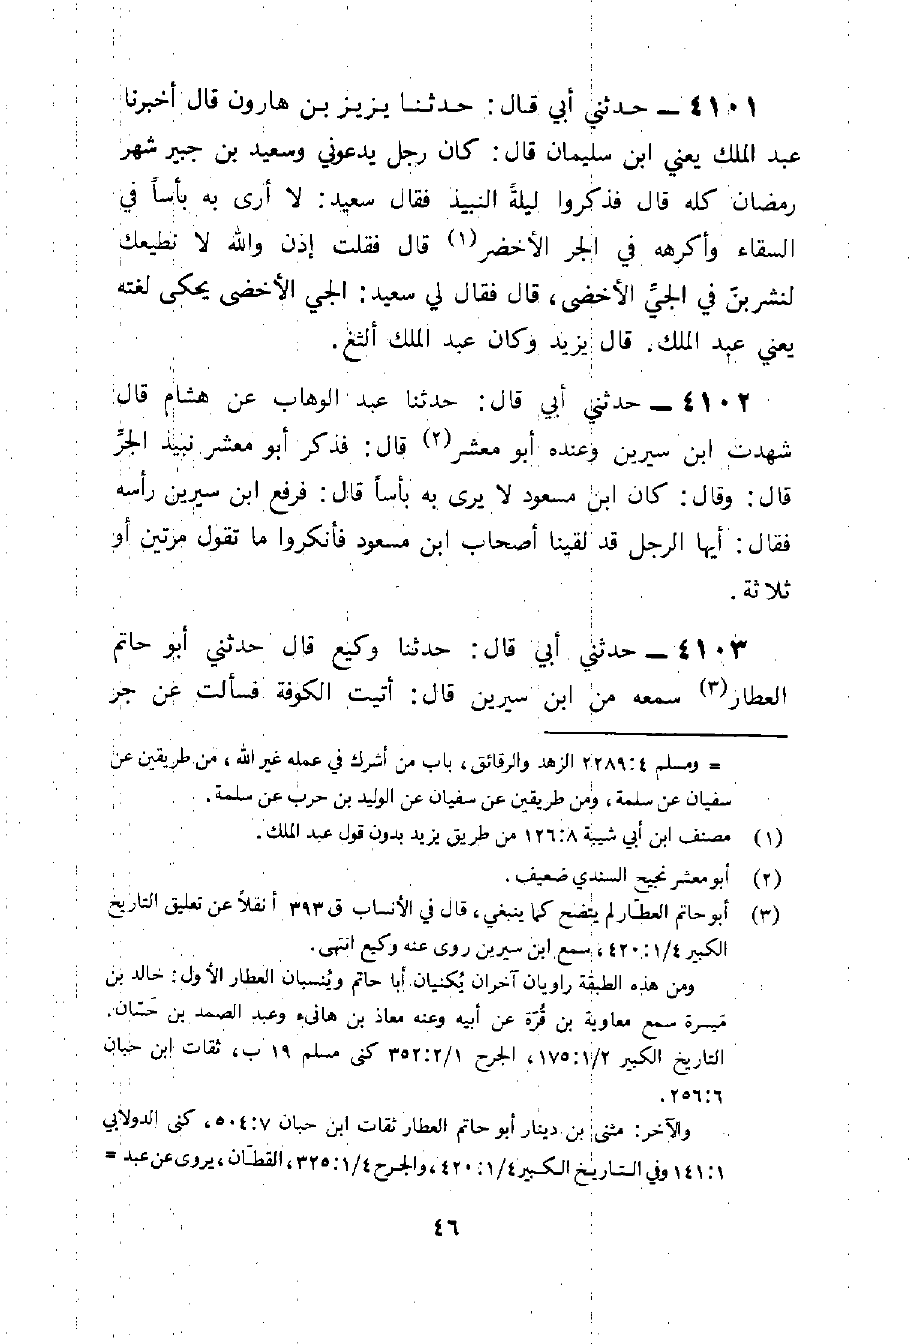 ٤١٠١ ــ حدثني أبي قال: حدثنا يزيز بن هارون قال أخبرنا
عبد الملك يعني ابن سليمان قال: كان رجل يدعوني وسعيد بن جبير شهر
رمضان كله قال فذكروا ليلةً النبيذ فقال سعيد: لا أرى به بأساً في
السقاء وأكرهه في الجر الأخضر(١) قال فقلت إذن والله لا نطيعك
لنشربنّ في الجيِّ الأخضى، قال فقال لي سعيد: الجي الأخضى يحكى لغته
يعني عبد الملك. قال يزيد وكان عبد الملك ألثغ.
٤١٠٢ ــ حدثني أبي قال: حدثنا عبد الوهاب عن هشام قال
شهدت ابن سيرين وعنده أبو معشر(٢) قال: فذكر أبو معشر نبيذ الجرِّ
قال: وقال: كان ابن مسعود لا يرى به بأساً قال: فرفع ابن سيرين رأسه
فقال: أيها الرجل قد لقينا أصحاب ابن مسعود فأنكروا ما تقول مرتين أو
ثلاثة.
٤١٠٣ ــ حدثني أبي قال: حدثنا وكيع قال حدثني أبو حاتم
العطار(٣) سمعه من ابن سيرين قال: أتيت الكوفة فسألت عن جر
= ومسلم ٢٢٨٩:٤ الزهد والرقائق، باب من أشرك في عمله غير الله، من طريقين عن
سفيان عن سلمة، ومن طريقين عن سفيان عن الوليد بن حرب عن سلمة.
(١) مصنف ابن أبي شيبة ١٢٦:٨ من طريق يزيد بدون قول عبد الملك.
(٢) أبو معشر نجيح السندي ضعيف.
(٣) أبو حاتم العطّار لم يتضح كما ينبغي، قال في الأنساب ق ٣٩٣ أ نقلاً عن تعليق التاريخ
الكبير ٤٢٠:١/٤، سمع ابن سيرين روى عنه وكيع انتهى.
ومن هذه الطبقة راويان آخران يُكنيان أبا حاتم ويُنسبان العطار الأول: خالد بن
مَيسرة سمع معاوية بن قُرّة عن أبيه وعنه معاذ بن هانىء وعبد الصمد بن حَسّان.
التاريخ الكبير ١٧٥:١/٢، الجرح ٣٥٢:٢/١ كنى مسلم ١٩ ب، ثقات ابن حبان
٢٥٦:٦.
والآخر: مثنى بن دينار أبو حاتم العطار ثقات ابن حبان ٥٠٤:٧، كنى الدولابي
١٤١:١ وفي التاريخ الكبير ٤٢٠:١/٤، والجرح ٣٢٥:١/٤، القطّان، يروى عن عبد =
٤٦